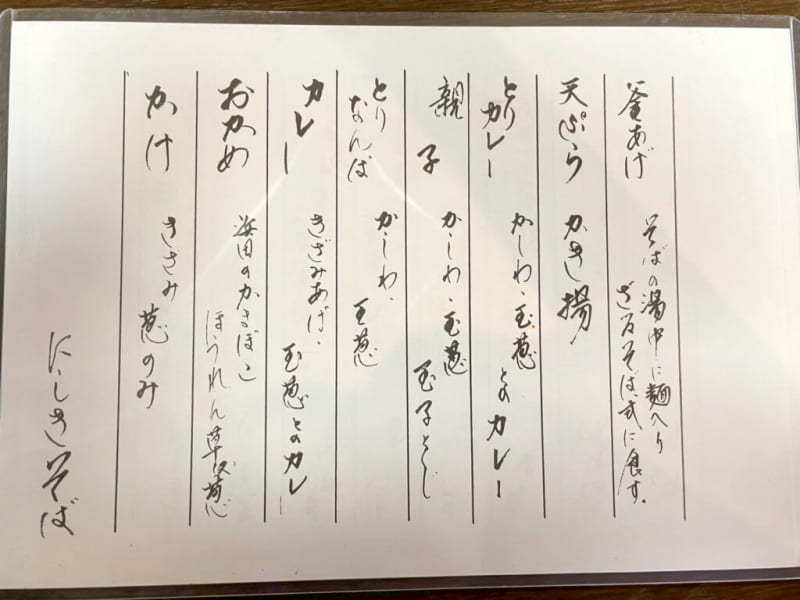 釜あげ
そばの湯中に麺入り
ざるそば式に食す。
天ぷら かき揚
とりカレー
かしわ、玉葱とのカレー
親子
かしわ、玉葱 玉子とじ
とりなんば
かしわ、玉葱
カレー
きざみあげ、玉葱とのカレー
おかめ
浜田のかまぼこ
ほうれん草
かけ
きざみ葱のみ
にしきそば